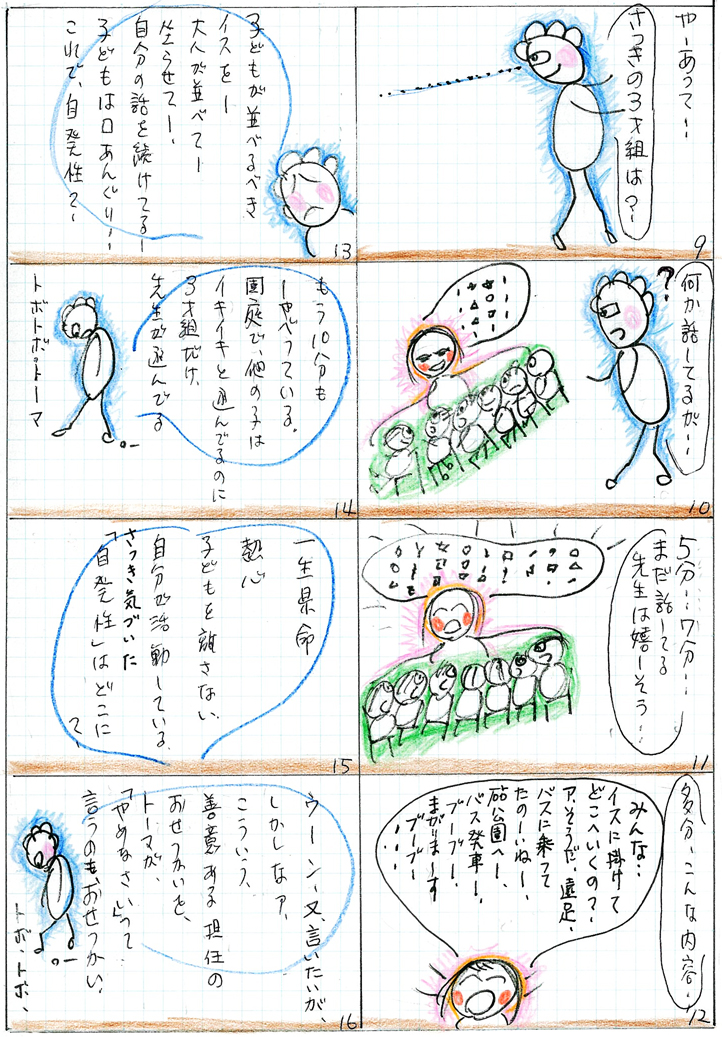 やーあって！
さっきの3才組は？ー
9
何か話してるが…
？
10
5分…7分…
まだ話してる
先生は嬉ーそう…
11
多分、こんな内容…
みんな…
イスに掛けて
どこへいくの？…
ア、そうだ、遠足、
バスに乗って
たのーいねー、
砧公園へー、
バス発車ー、
ブーブー、
まがりまーす
ブーブー
……
12
子どもが並べるべき
イスをー
大人が並べてー
坐らせてー、
自分の話を続けてるー
子どもは口あんぐり！ー
これで、自発性？ー
13
もう10分も
ーゃべっている。
園庭で、他の子は
イキイキと遊んでるのに
3才組だけ、
先生が遊んでる
トボトボ・トーマ
14
一生県命
熱心
子どもを離さない、
自分が活動している、
さっき気づいた
「自発性」はどこに
？
15
ウーン、又、言いたいが、
しかしなァ、
こういう、
善意ある担任の
おせっかいを、
トーマが、
「やめなさい」って
言うのも、おせっかい、
トボ・トボ、
16